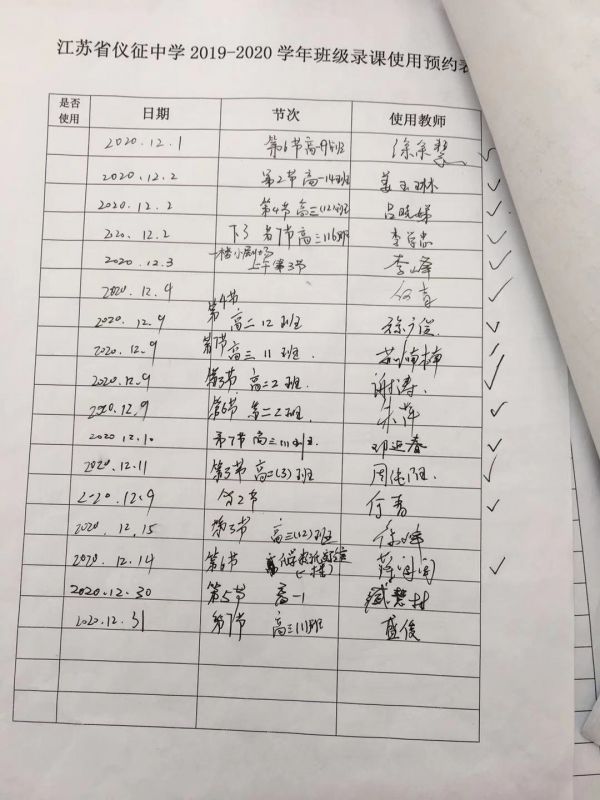 江苏省仪征中学2019-2020学年班级录课使用预约表
是否使用 日期 节次 使用教师
2020.12.1 第6节高一9班
2020.12.2 第2节高一14班 姜玉琳
2020.12.2 第4节高三(12)班 吕晓娣
2020.12.2 下3 第7节高三16班 李学忠
2020.12.3 一楼小剧场上午第3节 李峰
2020.12.4 何青
2020.12.9 第4节高二12班
2020.12.9 第7节高三11班.
2020.12.9 第3节高二2班. 谢涛.
2020.12.9 第6节高二2班. 朱萍
2020.12.10 第7节高三11班. 邓迎春
2020.12.11 第3节高二(3)班
2-20.12.9 第2节 何青
2020.12.15 第3节高三(12)班
2020.12.14 第6节
2020.12.30 第5节高一1
2020.12.31 第7节高三11班 盛俊